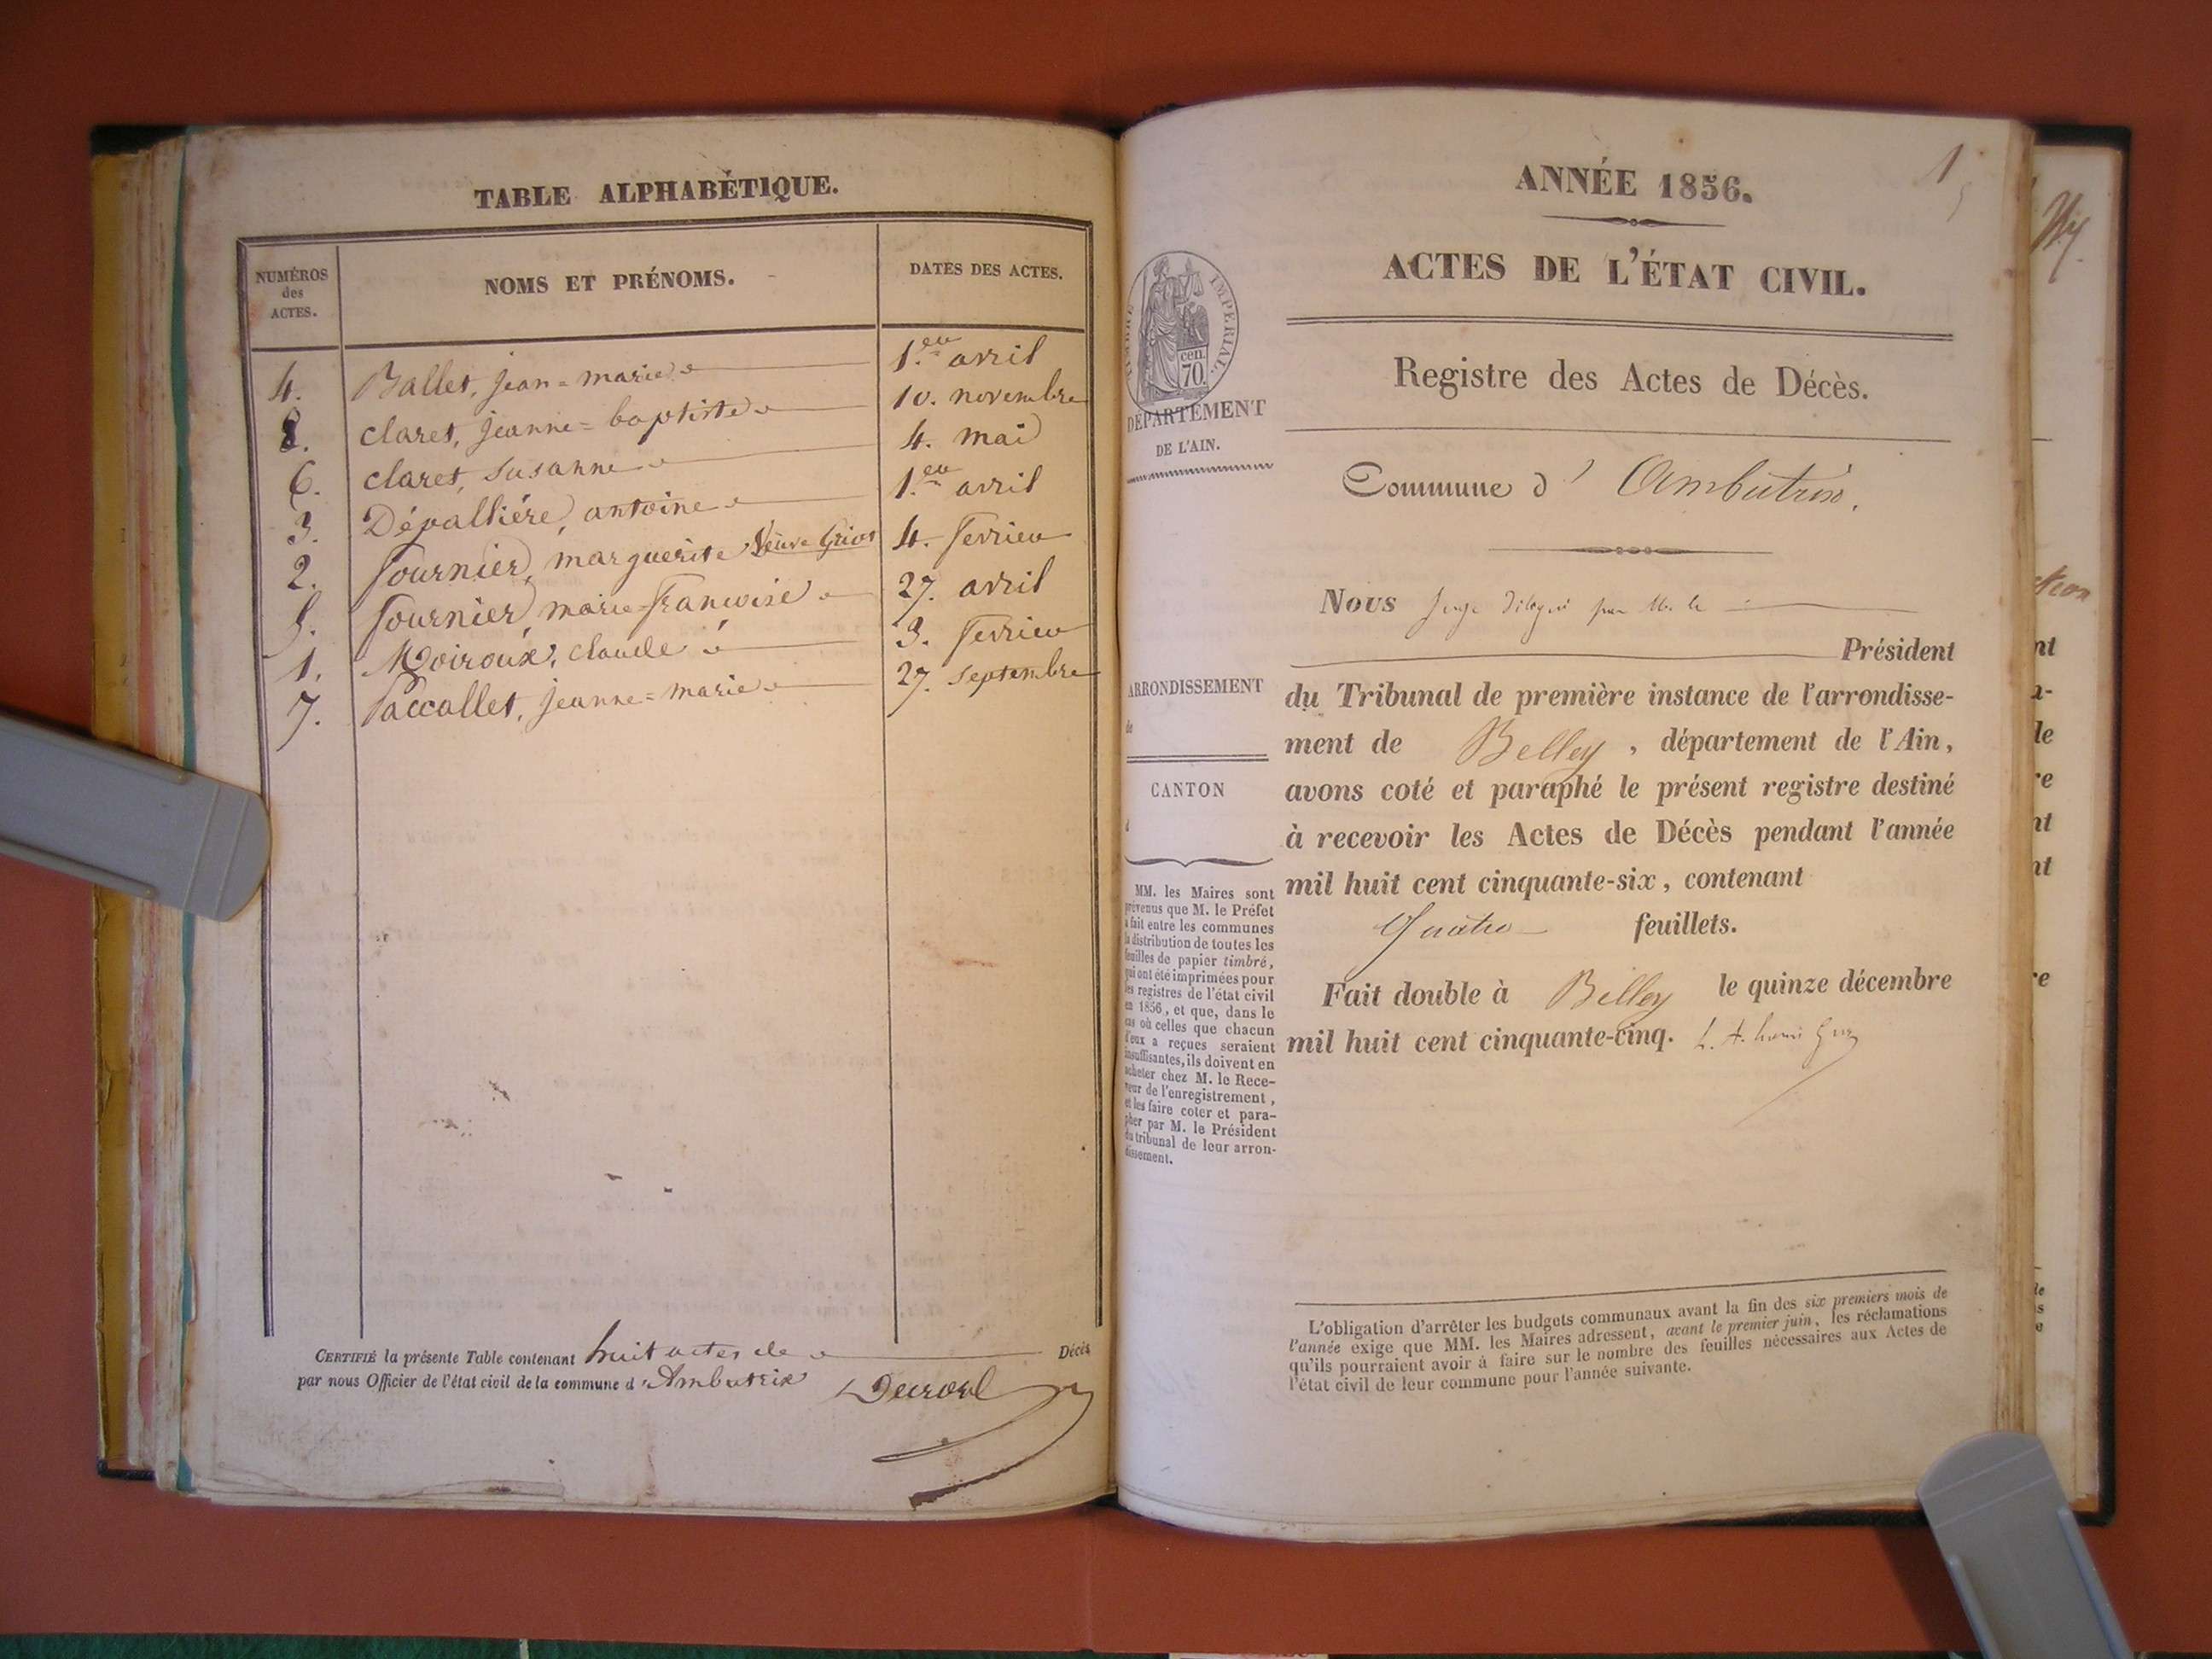 TABLE ALPHABÉTIQUE.
NUMÉROS
des
ACTES.
NOMS ET PRÉNOMS.
DATES DES ACTES.
4. Ballet, jean=marie 1.er avril
8. claret, jeanne=baptiste 10. novembre
6. claret, susanne 4. mai
3. Dépallière, antoine 1.er avril
2. fournier, marguerite Veuve 4. fevrier
5. fournier, marie-francoise 27. avril
1. Moiroux, claude 3. fevrier
7. Paccallet, jeanne=marie 27. septembre
CERTIFIÉ la présente Table contenant huit actes de Décès
par nous Officier de l'état civil de la commune d'Ambutrix
1
ANNÉE 1856.
ACTES DE L'ÉTAT CIVIL.
TIMBRE IMPÉRIAL
cen.
70
DÉPARTEMENT
DE L'AIN.
Registre des Actes de Décès.
Commune d' Ambutrix.
Nous juge délégué par Mr le
Président
ARRONDISSEMENT
de
du Tribunal de première instance de l'arrondisse-
ment de Belley, département de l'Ain,
CANTON
avons coté et paraphé le présent registre destiné
à recevoir les Actes de Décès pendant l'année
mil huit cent cinquante-six, contenant
Quatre feuillets.
Fait double à Belley le quinze décembre
mil huit cent cinquante-cinq.
MM. les Maires sont
prévenus que M. le Préfet
a fait entre les communes
la distribution de toutes les
feuilles de papier timbré,
qui ont été imprimées pour
les registres de l'état civil
en 1856, et que, dans le
cas où celles que chacun
d'eux a reçues seraient
insuffisantes, ils doivent en
acheter chez M. le Rece-
veur de l'enregistrement,
et les faire coter et para-
pher par M. le Président
du tribunal de leur arron-
dissement.
L'obligation d'arrêter les budgets communaux avant la fin des six premiers mois de
l'année exige que MM. les Maires adressent, avant le premier juin, les réclamations
qu'ils pourraient avoir à faire sur le nombre des feuilles nécessaires aux Actes de
l'état civil de leur commune pour l'année suivante.